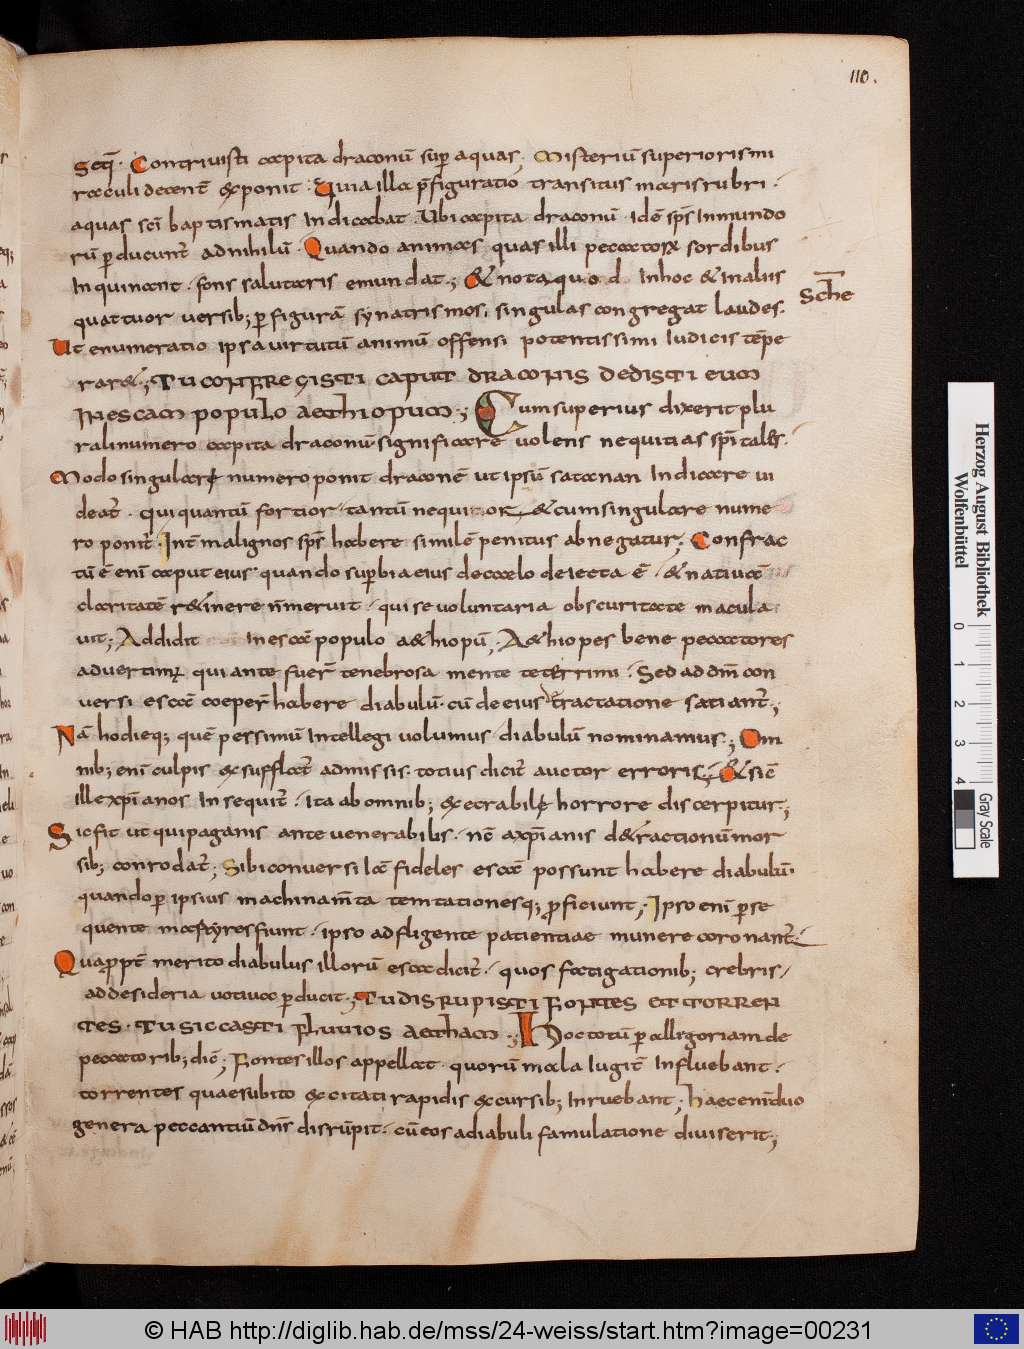 110.
Seq̄· Contriuisti capita draconū sup aquas; Misteriū superioris mi
raculi decent̄ exponit· Quia illa p̄figuratio transitus maris rubri·
aquas sc̄i baptismatis Indicabat· Ubi capita draconū· Idē sp̄s Inmundo
rū p ducunt̄ adnihilū· Quando animas quas illi peccator sordibus
Inquinant· fons salutaris emundat; & nota quod Inhoc & Inaliis
Sche
quattuor versib; p figurā synatrismos, singulas congregat laudes.
Ut enumeratio ipsa virtutū animū offensi potentissimi Iudicis tēpe
rar&; TU CONFREGISTI CAPUT DRACONIS DEDISTI EUM
IN ESCAM POPULO AETHIOPUM; Cum superius dixerit plu
rali numero capita draconū significare uolens nequitias sp̄itales·
Modo singulare numero ponit draconē ut ipsū satanan Indicare ui
deat̄· qui quantū fortior· tantū nequior & cum singulare nume
ro ponit̄· Int̄ malignos sp̄s habere similē penitus abnegatur; Confrac
tū ē enī caput eius· quando supbia eius de caelo deiecta ē· & natiuā
claritatē r&inere n̄ meruit· qui se uoluntaria obscuritate macula
uit; Addidit In escā populo a&hiopū· A&hiopes bene peccatores
aduertimus qui ante fuer̄ tenebrosa mente teterrimi· Sed ad dm̄ con
versi escā coeper̄ habere diabulū· cū de eius tractatione satiant̄;
Nā hodieq; quē pessimū Intellegi uolumus· diabulū nominamus; Om
nib; enī culpis & sufflat admissis· totius dicit̄ auctor erroris; & sic̄
ille xp̄ianos Insequit̄· Ita ab omnib; execrabile horrore discerpitur;
Sic fit ut qui paganis ante uenerabilis· nc̄ a xp̄ianis d&ractionū mor
sib; conrodat̄; Sibi conuersi lac̄ fideles escā possunt habere diabulū·
quando p ipsius machinam̄ta temtationesq; proficiunt; Ipso enī pse
quente martyres fiunt· ipso adfligente patientiae munere coronant̄·
Quappt̄ merito diabulus illorū esca dicit̄· quos fatigationib; crebris
ad desideria uotiua pducit; TU DISRUPISTI FONTES ET TORREN
TES· TU SICCASTI FLUUIOS AETHAM; Hoc totū p allegoriam de
peccatorib; dic̄; Fontes illos appellat· quorū mala Iugit̄ Influebant·
torrentes quae subito excitati rapidis excursib; Inruebant; haec enī duo
genera peccantiū dn̄s disrūpit· cū eos a diabuli famulatione diuiserit;
Herzog August Bibliothek
Wolfenbüttel
0 1 2 3 4
Gray Scale
© HAB http://diglib.hab.de/mss/24-weiss/start.htm?image=00231